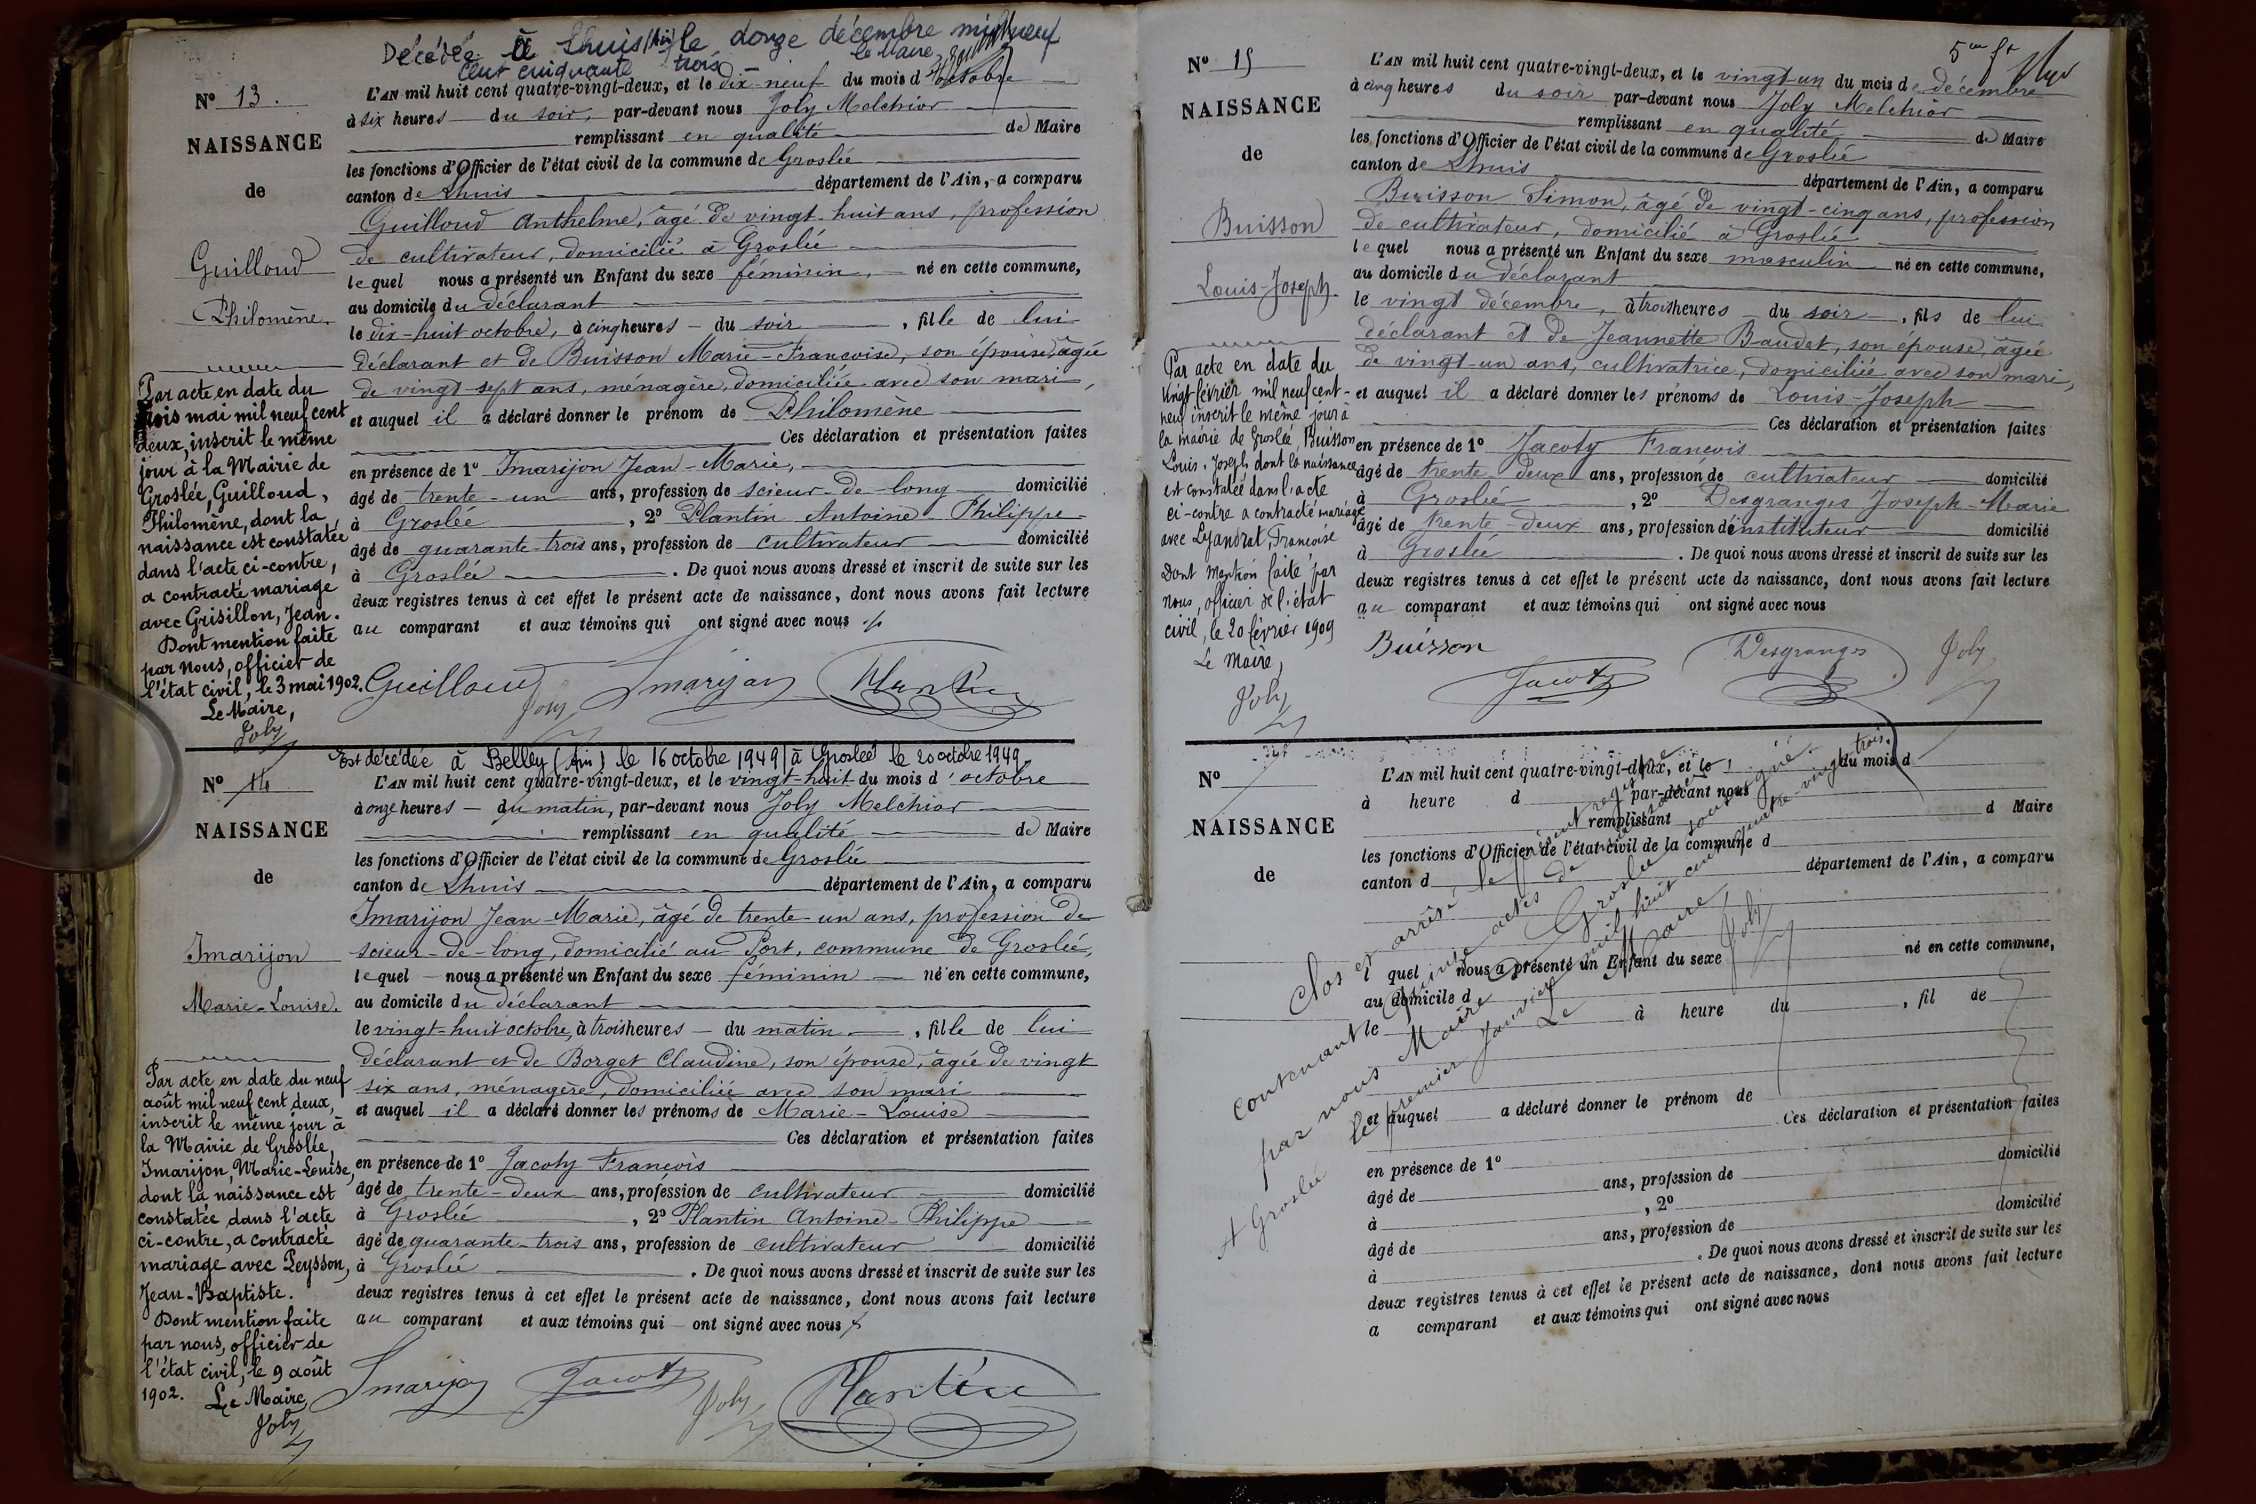 Décédée à Lhuis (Ain) le douze décembre mil neuf
cent cinquante trois
le Maire,
N° 13.
NAISSANCE
de
Guilloud
Philomène.
L'AN mil huit cent quatre-vingt-deux, et le dix-neuf du mois d'octobre
à six heures du soir, par-devant nous Joly Melchior
remplissant en qualité de Maire
les fonctions d'Officier de l'état civil de la commune de Groslée
canton de Lhuis département de l'Ain, a comparu
Guilloud Anthelme, âgé de vingt-huit ans, profession
de cultivateur, domicilié à Groslée
lequel nous a présenté un Enfant du sexe féminin, né en cette commune,
au domicile du déclarant
le dix-huit octobre, à cinq heures du soir, fille de lui
déclarant et de Buisson Marie-Françoise, son épouse, âgée
de vingt-sept ans, ménagère, domiciliée avec son mari,
et auquel il a déclaré donner le prénom de Philomène
Ces déclaration et présentation faites
en présence de 1° Imarijon Jean-Marie,
âgé de trente-un ans, profession de scieur-de-long domicilié
à Groslée, 2° Plantin Antoine-Philippe
âgé de quarante-trois ans, profession de cultivateur domicilié
à Groslée. De quoi nous avons dressé et inscrit de suite sur les
deux registres tenus à cet effet le présent acte de naissance, dont nous avons fait lecture
au comparant et aux témoins qui ont signé avec nous
Guilloud Joly Imarijon Plantin
Par acte en date du
trois mai mil neuf cent
deux, inscrit le même
jour à la Mairie de
Groslée, Guilloud,
Philomène, dont la
naissance est constatée
dans l'acte ci-contre,
a contracté mariage
avec Grisillon, Jean.
Dont mention faite
par nous, officier de
l'état civil, le 3 mai 1902.
Le Maire,
Joly
Est décédée à Belley (Ain) le 16 octobre 1949 / à Groslée le 20 octobre 1949
N° 14
NAISSANCE
de
Imarijon
Marie-Louise.
L'AN mil huit cent quatre-vingt-deux, et le vingt-huit du mois d'octobre
à onze heures du matin, par-devant nous Joly Melchior
remplissant en qualité de Maire
les fonctions d'Officier de l'état civil de la commune de Groslée
canton de Lhuis département de l'Ain, a comparu
Imarijon Jean-Marie, âgé de trente-un ans, profession de
scieur-de-long, domicilié au Port, commune de Groslée,
lequel nous a présenté un Enfant du sexe féminin né en cette commune,
au domicile du déclarant
le vingt-huit octobre, à trois heures du matin, fille de lui
déclarant et de Borget Claudine, son épouse, âgée de vingt
six ans, ménagère, domiciliée avec son mari
et auquel il a déclaré donner les prénoms de Marie-Louise
Ces déclaration et présentation faites
en présence de 1° Jacoty François
âgé de trente-deux ans, profession de cultivateur domicilié
à Groslée, 2° Plantin Antoine-Philippe
âgé de quarante-trois ans, profession de cultivateur domicilié
à Groslée. De quoi nous avons dressé et inscrit de suite sur les
deux registres tenus à cet effet le présent acte de naissance, dont nous avons fait lecture
au comparant et aux témoins qui ont signé avec nous
Imarijon Jacoty Joly Plantin
Par acte en date du neuf
août mil neuf cent deux,
inscrit le même jour à
la Mairie de Groslée,
Imarijon, Marie-Louise,
dont la naissance est
constatée dans l'acte
ci-contre, a contracté
mariage avec Peysson,
Jean-Baptiste.
Dont mention faite
par nous, officier de
l'état civil, le 9 août
1902. Le Maire,
Joly
N° 15
NAISSANCE
de
Buisson
Louis-Joseph.
L'AN mil huit cent quatre-vingt-deux, et le vingt-un du mois de décembre
à cinq heures du soir par-devant nous Joly Melchior
remplissant en qualité de Maire
les fonctions d'Officier de l'état civil de la commune de Groslée
canton de Lhuis département de l'Ain, a comparu
Buisson Simon, âgé de vingt-cinq ans, profession
de cultivateur, domicilié à Groslée
lequel nous a présenté un Enfant du sexe masculin né en cette commune,
au domicile du déclarant
le vingt décembre, à trois heures du soir, fils de lui
déclarant et de Jeannette Baudet, son épouse, âgée
de vingt-un ans, cultivatrice, domiciliée avec son mari,
et auquel il a déclaré donner les prénoms de Louis-Joseph
Ces déclaration et présentation faites
en présence de 1° Jacoty François
âgé de trente-deux ans, profession de cultivateur domicilié
à Groslée, 2° Desgranges Joseph-Marie
âgé de trente-deux ans, profession d'instituteur domicilié
à Groslée. De quoi nous avons dressé et inscrit de suite sur les
deux registres tenus à cet effet le présent acte de naissance, dont nous avons fait lecture
au comparant et aux témoins qui ont signé avec nous
Buisson Jacoty Desgranges Joly
Par acte en date du
vingt février mil neuf cent-
neuf inscrit le même jour à
la mairie de Groslée, Buisson
Louis-Joseph dont la naissance
est constatée dans l'acte
ci-contre a contracté mariage
avec Françoise
Dont mention faite par
nous, officier de l'état
civil, le 20 février 1909
Le Maire,
Joly
N°
NAISSANCE
de
L'AN mil huit cent quatre-vingt-deux, et le du mois d
à heure d par-devant nous
remplissant d Maire
les fonctions d'Officier de l'état civil de la commune d
canton d département de l'Ain, a comparu
l quel nous a présenté un Enfant du sexe né en cette commune,
au domicile d
le à heure du, fil de
et auquel a déclaré donner le prénom de
Ces déclaration et présentation faites
en présence de 1°
âgé de ans, profession de domicilié
à, 2°
âgé de ans, profession de domicilié
à. De quoi nous avons dressé et inscrit de suite sur les
deux registres tenus à cet effet le présent acte de naissance, dont nous avons fait lecture
a comparant et aux témoins qui ont signé avec nous
Clos et arrêté le présent registre
contenant quinze actes de naissance
par nous Maire de Groslée soussigné.
A Groslée le premier Janvier mil huit cent quatre-vingt trois.
Le Maire,
Joly